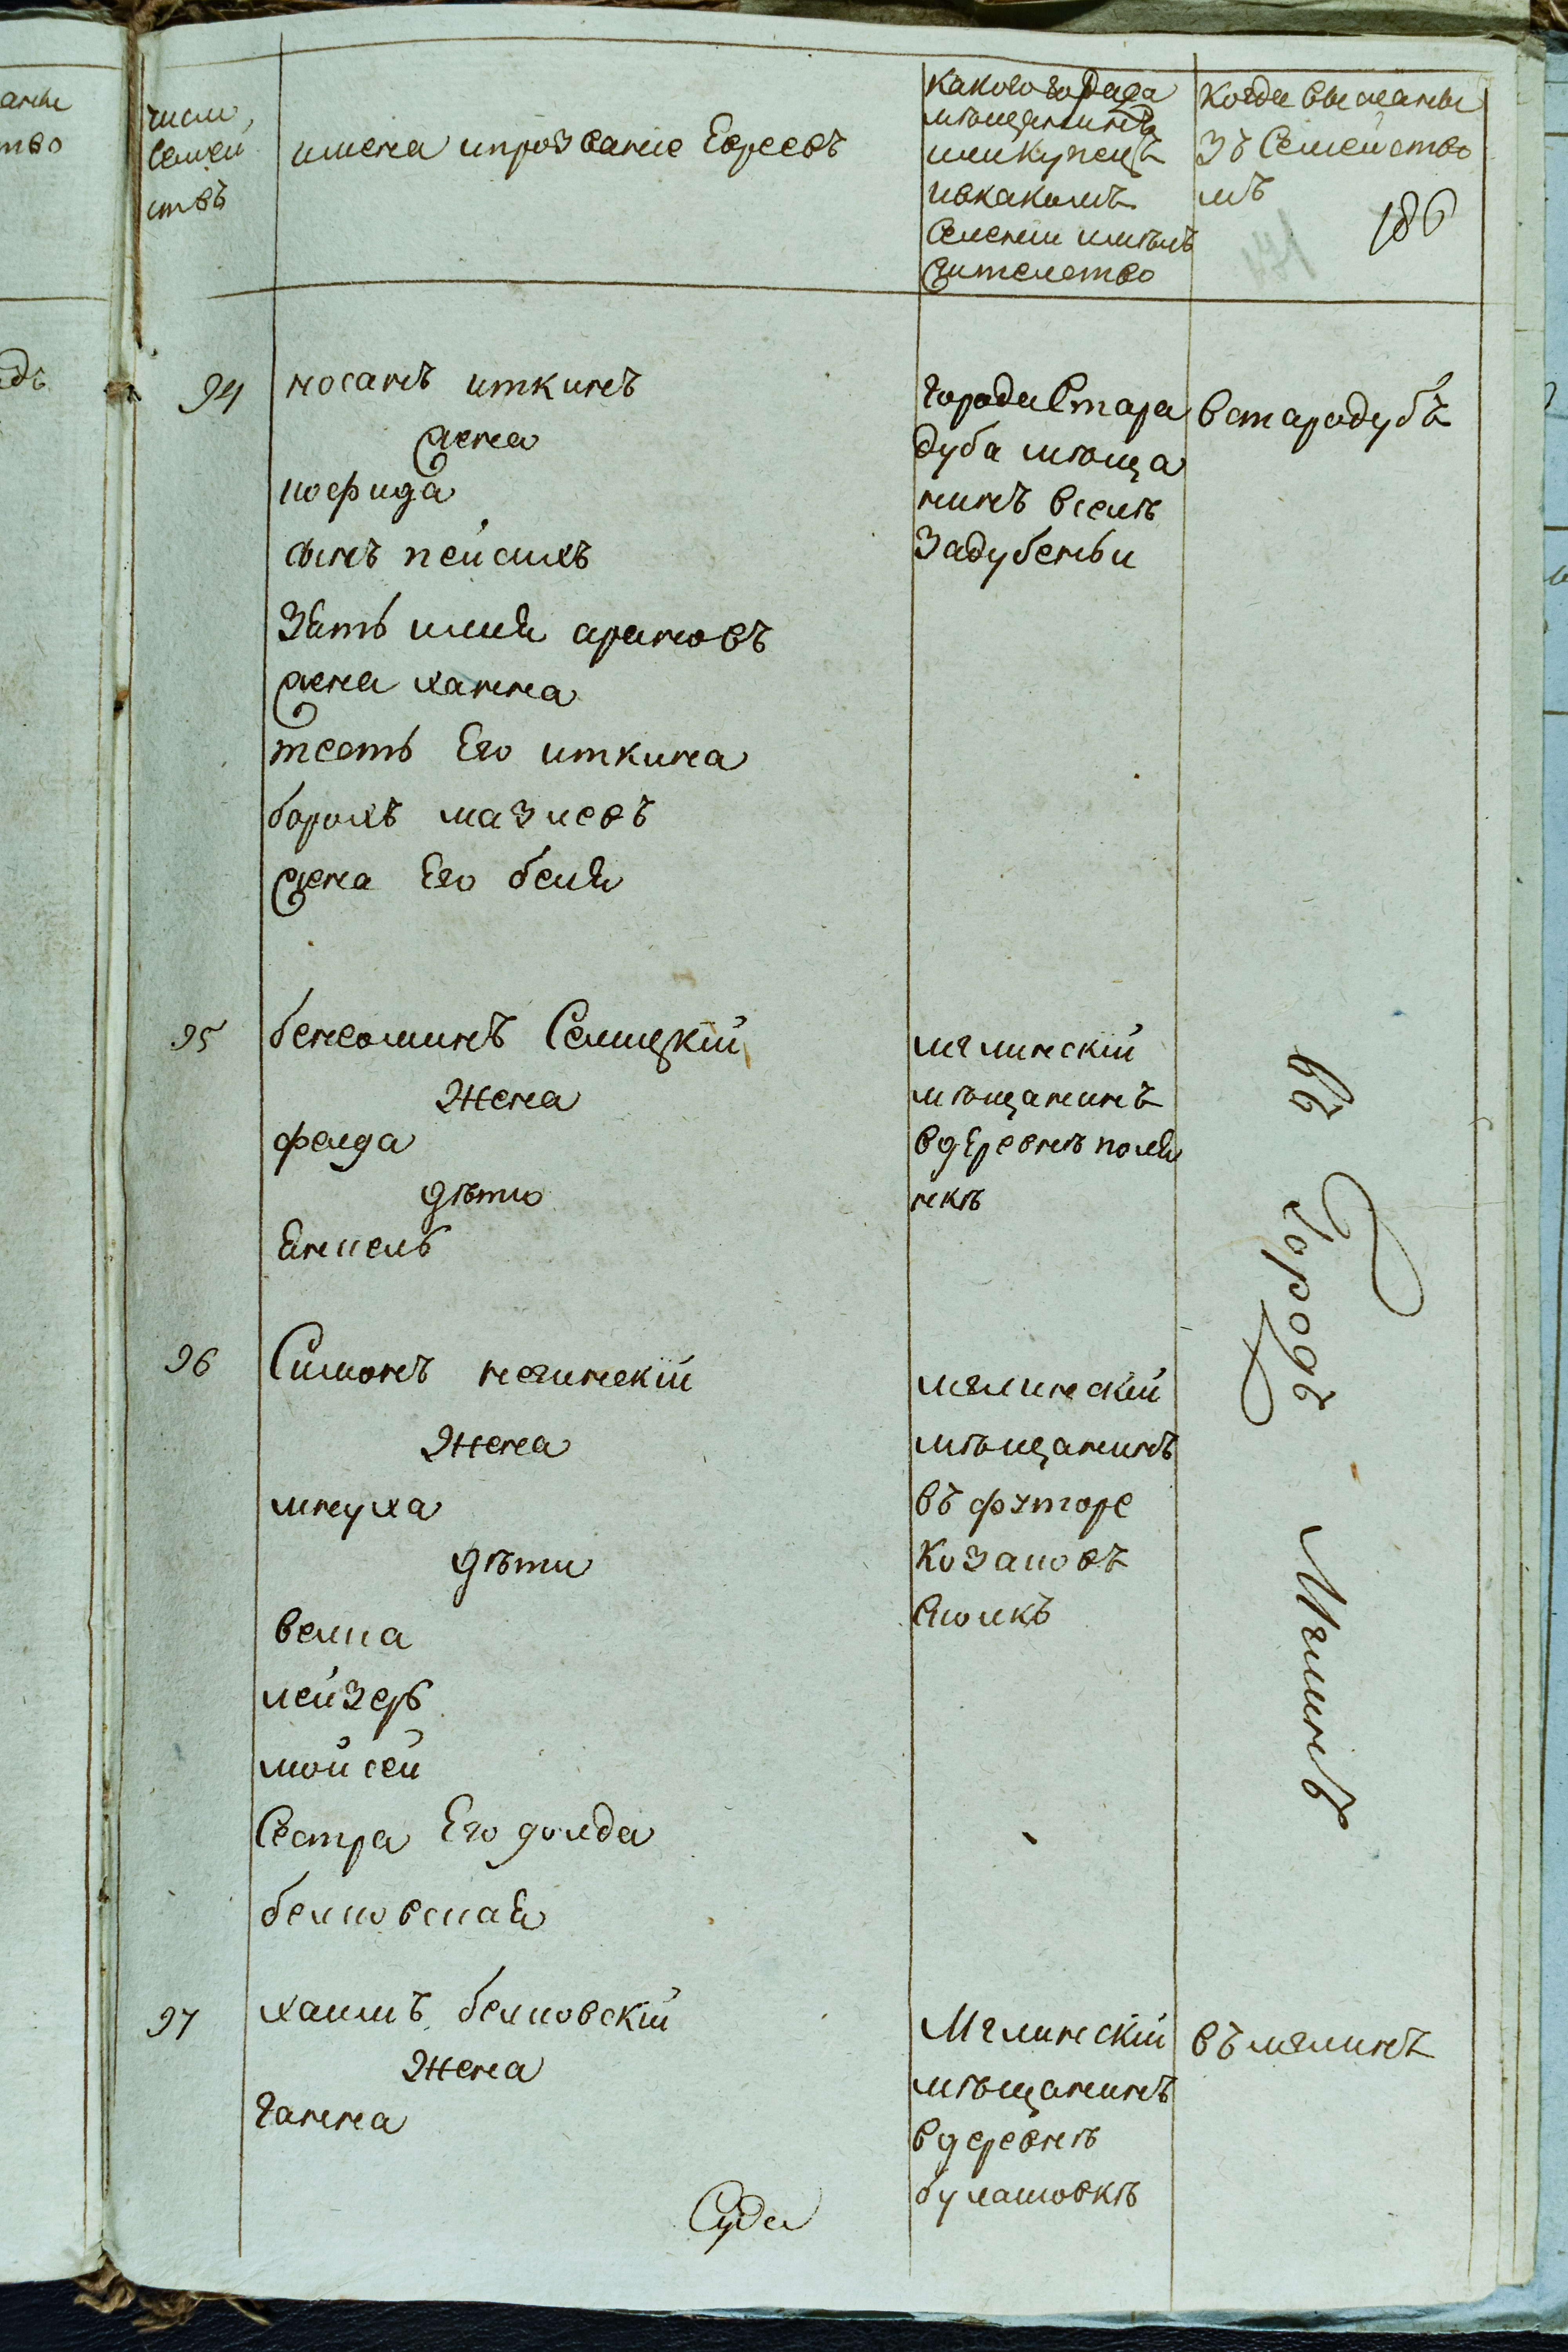 число
семей
ствъ
имена ипрозвание Евреевъ
какого города
мѣщанинъ
или купецъ
ивкакомъ
селении имѣлъ
жителство
Когда высланы
зъ Семейство
мъ
186
94
носанъ иткинъ
жена
иофида
сынъ пейсихъ
Зять илия ароновъ
жена ханна
тесть Его иткина
борохъ мазиевъ
жена Его беля
города Стара
дуба мѣща
нинъ вселѣ
Задубеньи
встародубъ
95
бенеоминъ Селицкий
Жена
фейда
дѣти
Янкель
мглинскій
мѣщанинъ
вдеревнѣ поля
нкѣ
96
Симонъ нежинскій
Жена
мнуха
дѣти
велка
лейзеръ
мойсей
Сестра Его голда
белковская
мглинскій
мѣщанинъ
въ футоре
въ Городъ Мглинъ
97
хаимъ белковскій
Жена
ганна
Мглинскій
мѣщанинъ
вдеревнѣ
булашовкѣ
въ мглинъ
Суда